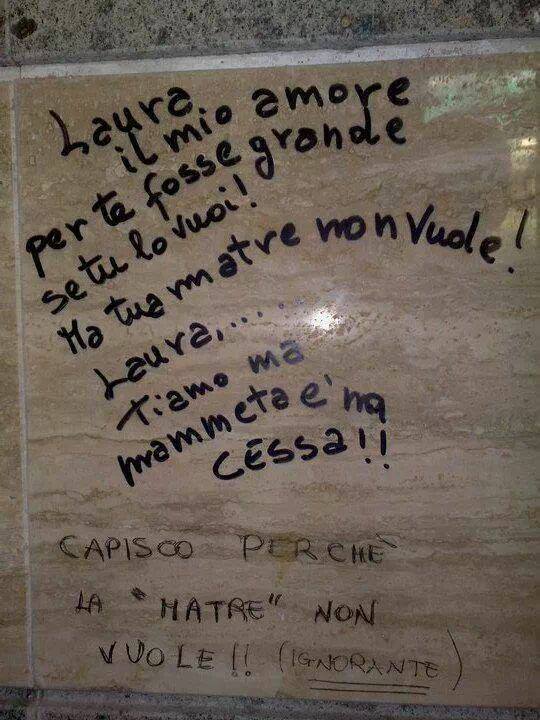 Laura,
il mio amore
per te fosse grande
se tu lo vuoi!
Ma tua matre non vuole!
Laura,.....
tiamo ma
mammeta e' na
cessa!!
CAPISCO PERCHE'
LA "MATRE" NON
VUOLE!! (IGNORANTE)